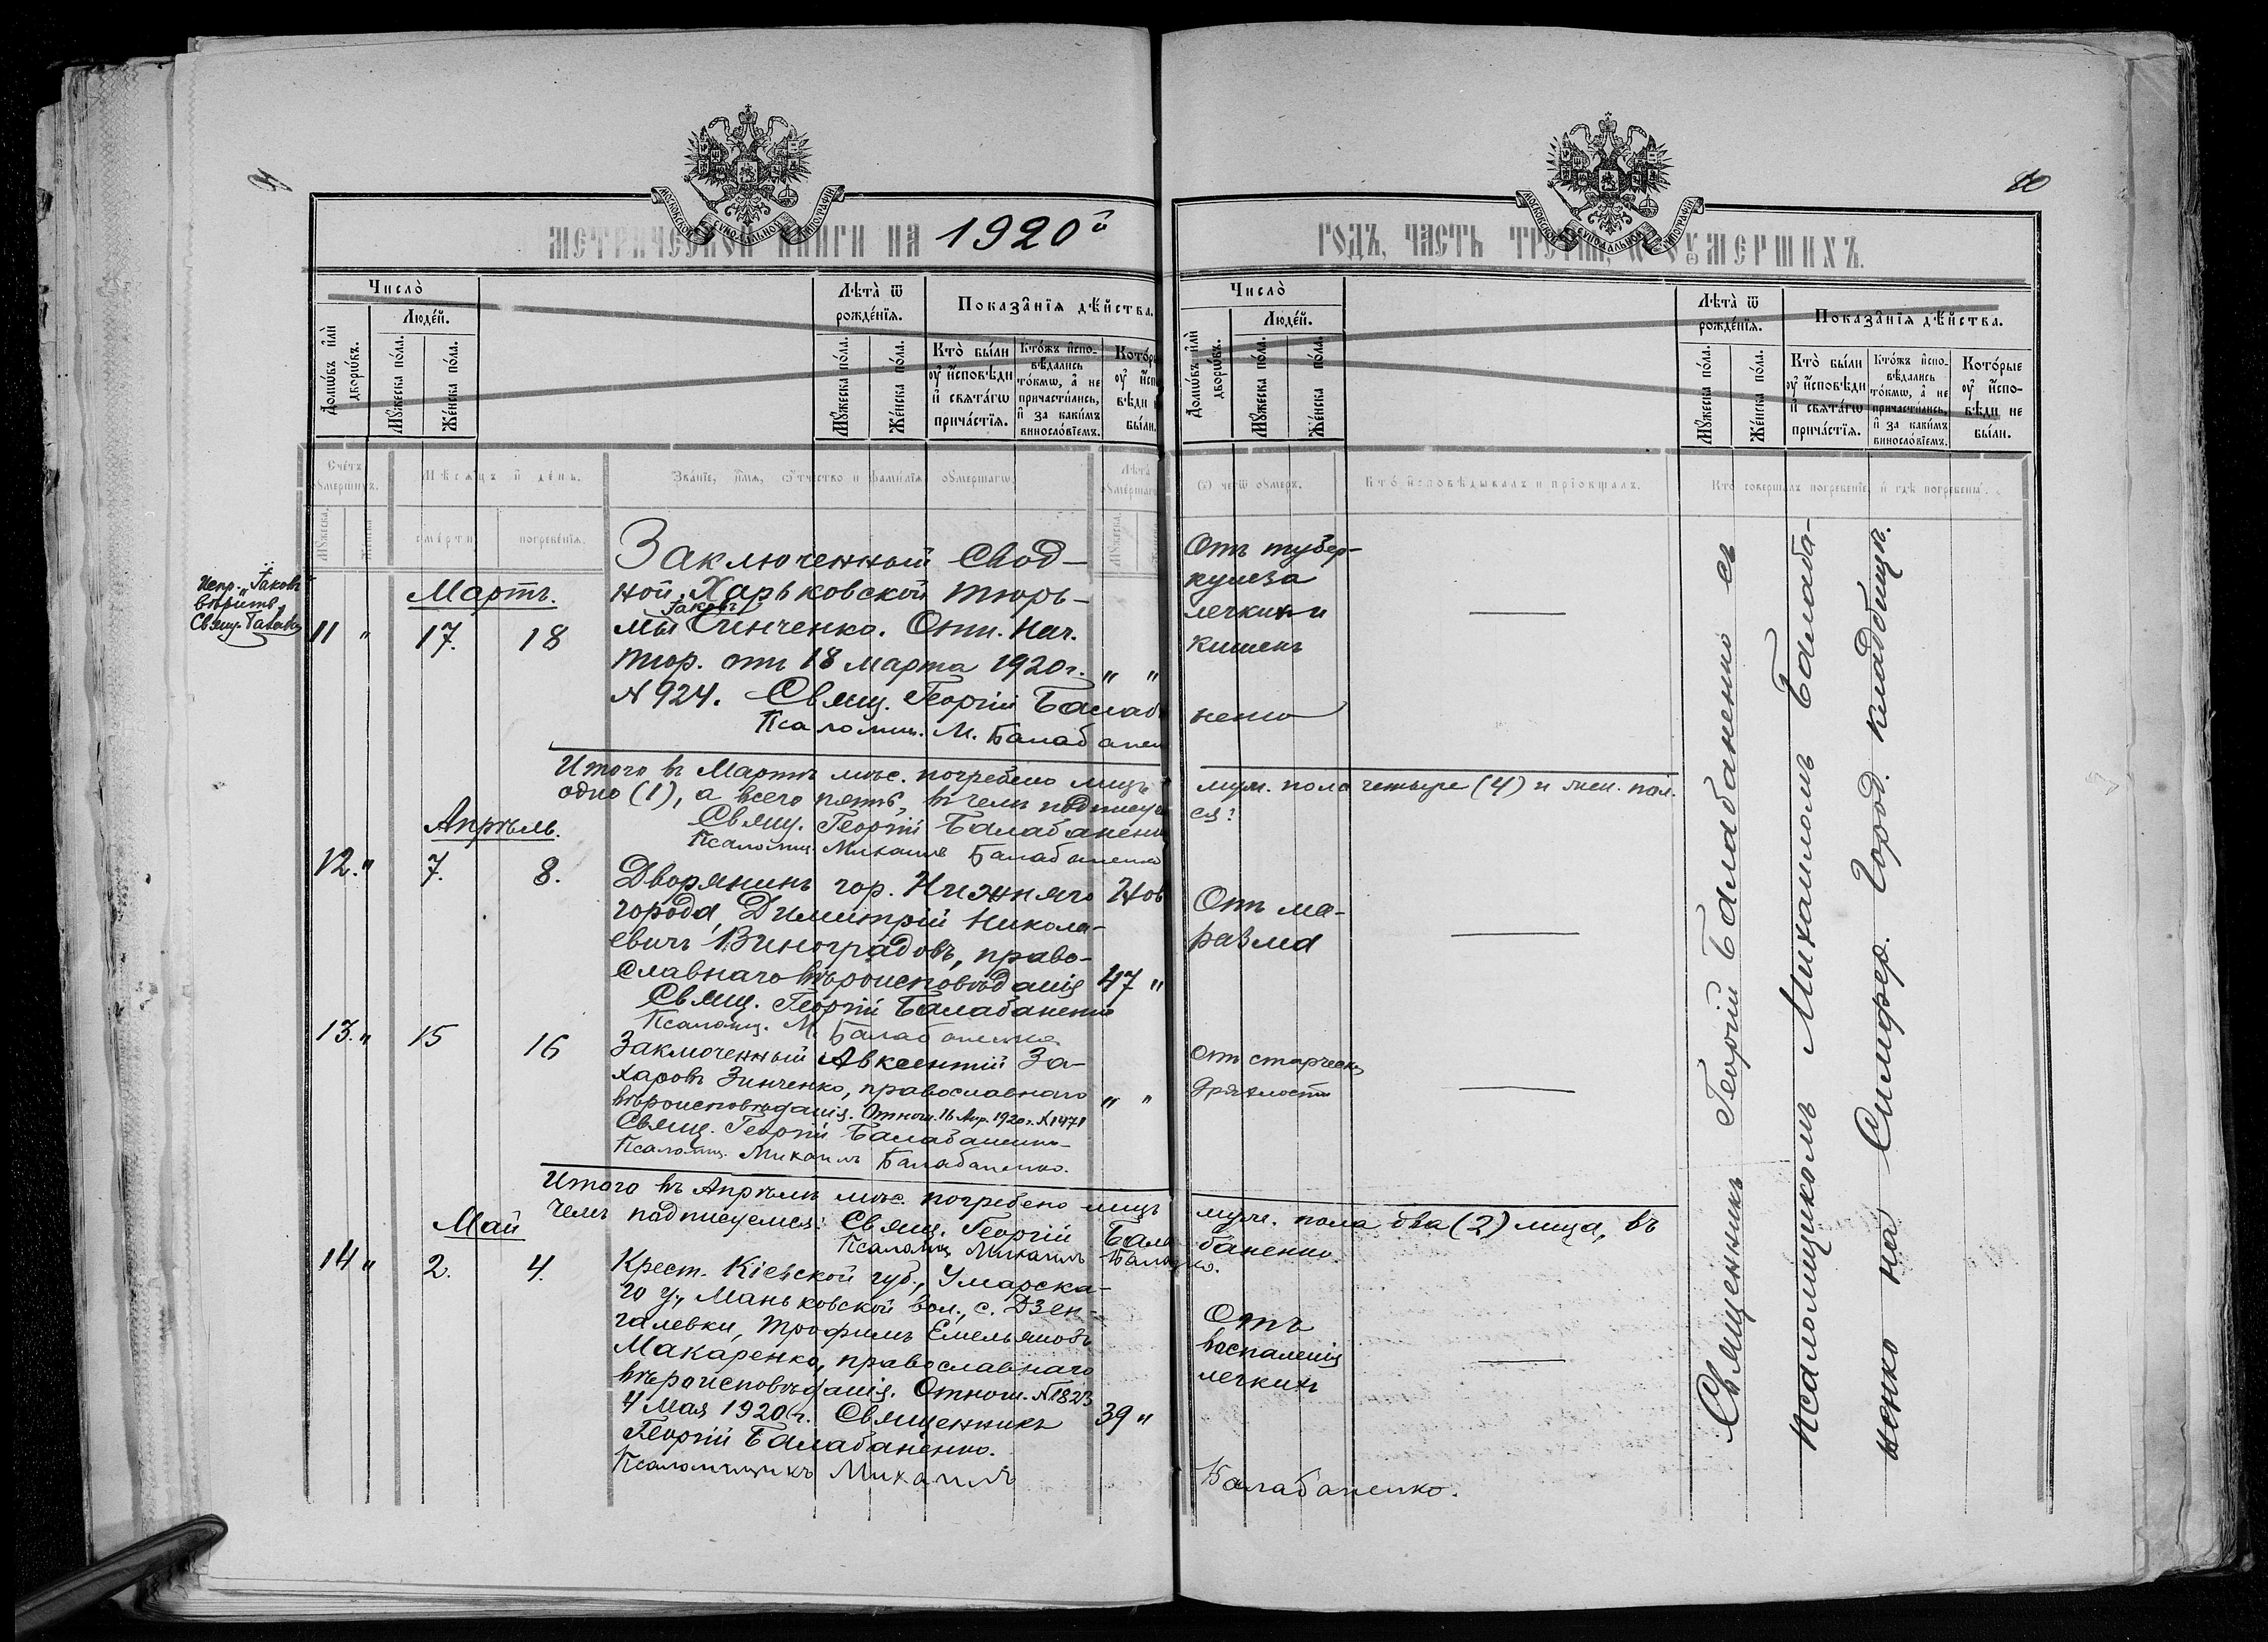 МЕТРИЧЕСКОЙ КНИГИ НА 1920й
Число̀
Людéй.
Домѡ́въ и҆лѝ дворѡ́въ.
Мꙋ́жеска по́ла.
Же́нска по́ла.
Лѣ́та ѿ рожде́нїѧ.
Мꙋ́жеска по́ла.
Же́нска по́ла.
Показа̑нїѧ дѣ́йства.
Кто̀ бы́ли оу҆ и҆сповѣди и҆ свѧта́гѡ прича́стїѧ.
Кто́жъ и҆спо-
вѣ́дались
то́кмѡ, а҆ не
причасти́лись,
и҆ за каки́мъ
винослóвїемъ.
Счéтъ оумершихъ.
Мѣсѧцъ и день.
смерти
погребенїѧ.
Званїе, имѧ, ѻтчество и фамилїѧ оумершагѡ
Лѣта
Испр. „Іаковъ"
вѣрить.
Свящ. Балаб.
Мартъ.
11 „ 17. 18
Заключенный Свод-
ной Харьковской тюрь-
Іаковъ
мы Синченко. Отн. Нач.
тюр. отъ 18 марта 1920 г. „ „
№ 924. Свящ. Георгій Балаб
Псаломщ. М. Балабанен
Итого въ Мартѣ мѣс. погребено лицъ
одно (1), а всего пять, въ чемъ подписуем
Свящ. Георгій Балабаненко
Псаломщ. Михаилъ Балабаненко
Апрѣль.
12. „ 7. 8.
Дворянинъ гор. Нижняго Нов
города, Димитрій Никола-
евичъ Виноградовъ, право-
славнаго вѣроисповѣданія 47 „
Свящ. Георгій Балабаненко
Псаломщ. М. Балабаненко
13. „ 15 16
Заключенный Авксентій За-
харовъ Зинченко, православнаго „ „
вѣроисповѣданія. Отнош. 16 Апр. 1920 г. № 1471
Свящ. Георгій Балабаненко
Псаломщ. Михаилъ Балабаненко.
Итого въ Апрѣлѣ мѣс. погребено лицъ
чемъ подписуемся: Свящ. Георгій Бала
Псаломщ Михаилъ Балаб
Май
14 „ 2. 4.
Крест. Кіевской губ., Уманска-
го у., Маньковской вол., с. Дзен-
галевки, Трофимъ Емельяновъ
Макаренко, православнаго
вѣроисповѣданія. Отнош. № 1823
4 Мая 1920 г. Священникъ 39 „
Георгій Балабаненко.
Псаломщикъ Михаилъ
10
ГОДЪ, ЧАСТЬ ТРЕТІЯ, Ѡ ОУМЕРШИХЪ.
Число̀
Людéй.
Домѡ́въ и҆лѝ дворѡ́въ.
Мꙋ́жеска по́ла.
Же́нска по́ла.
Лѣ́та ѿ рожде́нїѧ.
Мꙋ́жеска по́ла.
Же́нска по́ла.
Показа̑нїѧ дѣ́йства.
Кто̀ бы́ли оу҆ и҆сповѣди и҆ свѧта́гѡ прича́стїѧ.
Кто́жъ и҆спо-
вѣ́дались
то́кмѡ, а҆ не
причасти́лись,
и҆ за каки́мъ
винослóвїемъ.
Кото́рые
оу҆ и҆спо-
вѣ́ди не
бы́ли.
Ѿ чегѡ оумеръ.
Кто исповѣдывалъ и прїобщалъ.
Кто совершалъ погребенїе и гдѣ погребены.
Отъ тубер-
кулеза
легкихъ и
кишекъ
ненко
муж. пола четыре (4) и жен. пол.
ся:
Отъ ма-
разма
отъ старческ.
дряхлости
муж. пола два (2) лица, въ
баненко
ко.
Отъ
воспаленія
легкихъ
Балабаненко.
Священникъ Георгій Балабаненко съ
псаломщикомъ Михаиломъ Балаба-
ненко на Симфер. Город. кладбищѣ.